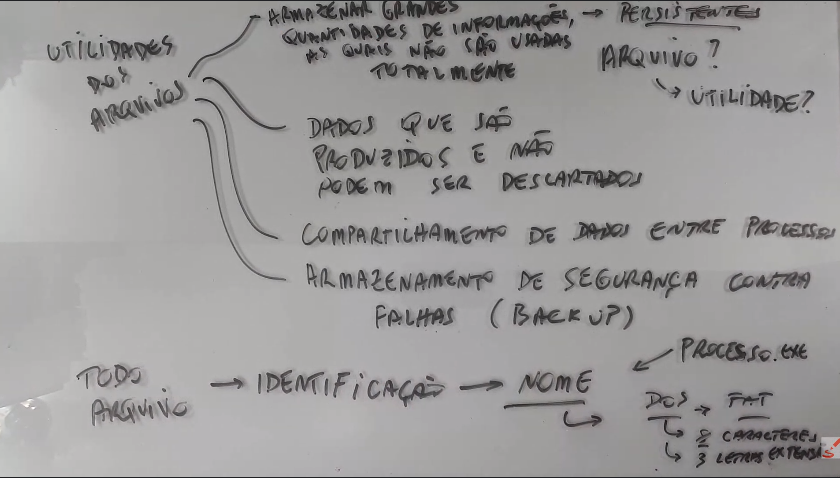 UTILIDADES
DOS
ARQUIVOS
ARMAZENAR GRANDES
QUANTIDADES DE INFORMAÇÕES,
AS QUAIS NÃO SÃO USADAS
TOTALMENTE
→ PERSISTENTES
ARQUIVO?
↳ UTILIDADE?
DADOS QUE SÃO
PRODUZIDOS E NÃO
PODEM SER DESCARTADOS
COMPARTILHAMENTO DE DADOS ENTRE PROCESSOS
ARMAZENAMENTO DE SEGURANÇA CONTRA
FALHAS (BACKUP)
TODO
ARQUIVO
→ IDENTIFICAÇÃO → NOME
PROCESSO.EXE
DOS → FAT
↳ 8 CARACTERES
↳ 3 LETRAS EXTENSÃO